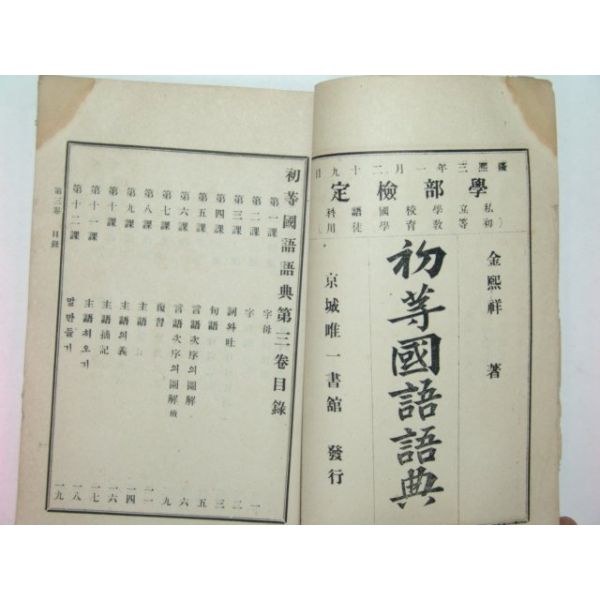 隆熙三年一月二十九日
學部檢定
私立學校國語科
初等教育學徒用
金熙祥 著
初等國語語典
京城唯一書舘 發行
初等國語語典第三卷目錄
第一課 字母 一
第二課 字 二
第三課 詞와吐 三
第四課 句語 五
第五課 言語次序의圖解 六
第六課 言語次序의圖解 續 九
第七課 復習 一一
第八課 主語 一四
第九課 主語의義 一六
第十課 主語揷記 一七
第十一課 主語치오기 一八
第十二課 말만들기 一九
第三卷 目錄